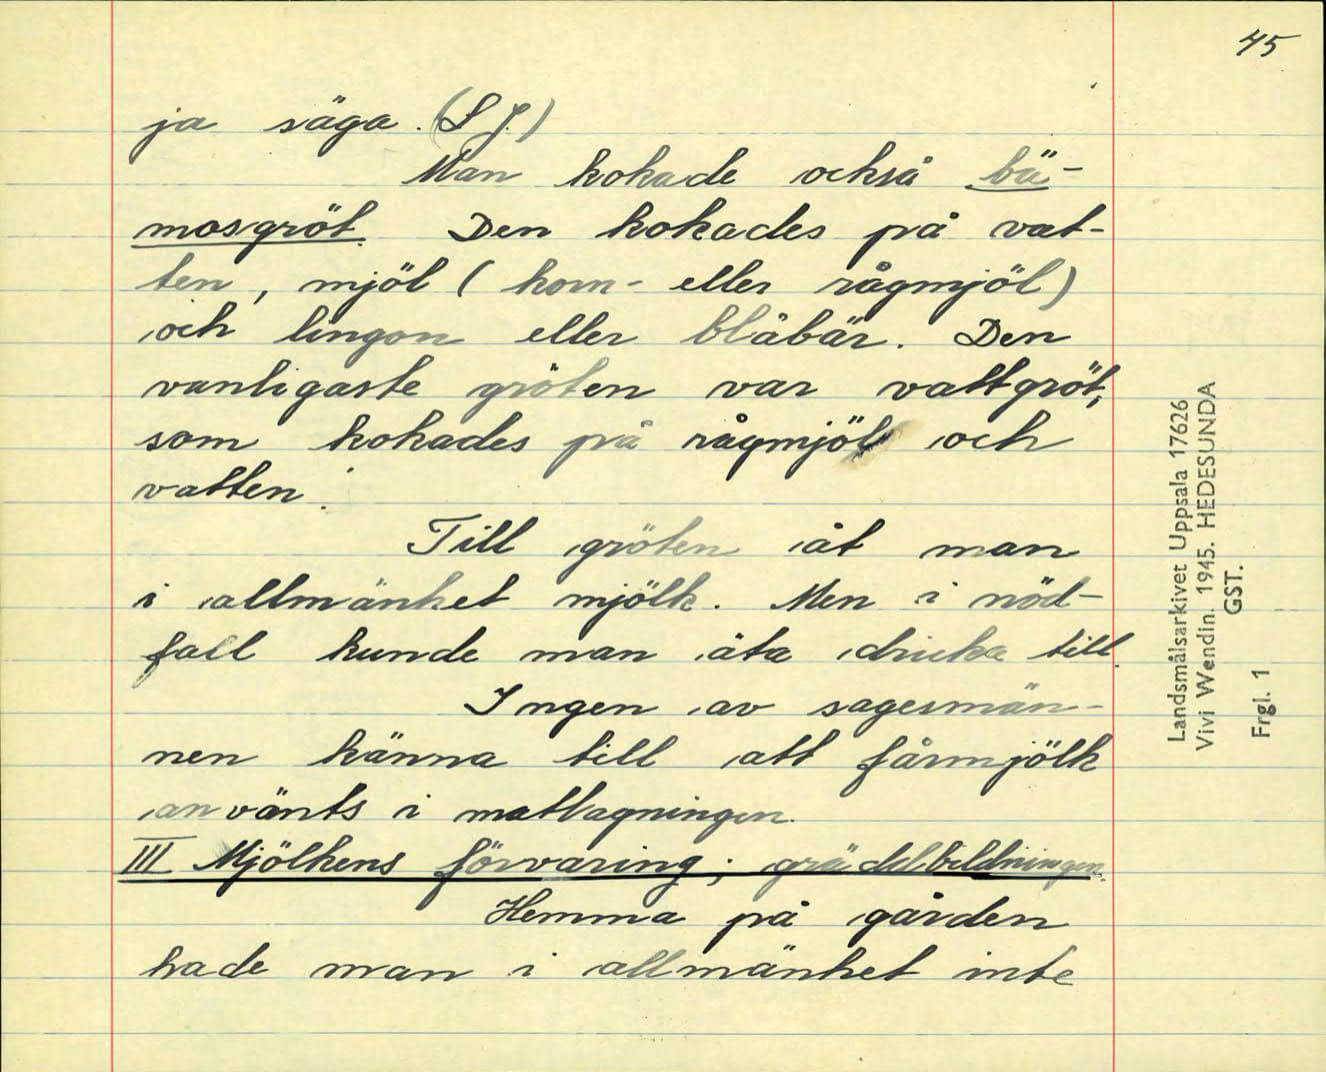 45
ja säga. (S J.)
Man kokade också bä-
mosgröt. Den kokades på vat-
ten, mjöl (korn- eller rågmjöl)
och lingon eller blåbär. Den
vanligaste gröten var vattgröt,
som kokades på rågmjöl och
vatten.
Till gröten åt man
i allmänhet mjölk. Men i nöd-
fall kunde man äta dricka till.
Ingen av sagesmän-
nen känna till att fårmjölk
använts i matlagningen.
III Mjölkens förvaring; gräddbildningen.
Hemma på gården
hade man i allmänhet inte
Landsmålsarkivet Uppsala 17626
Vivi Wendin. 1945. HEDESUNDA
GST.
Frgl. 1